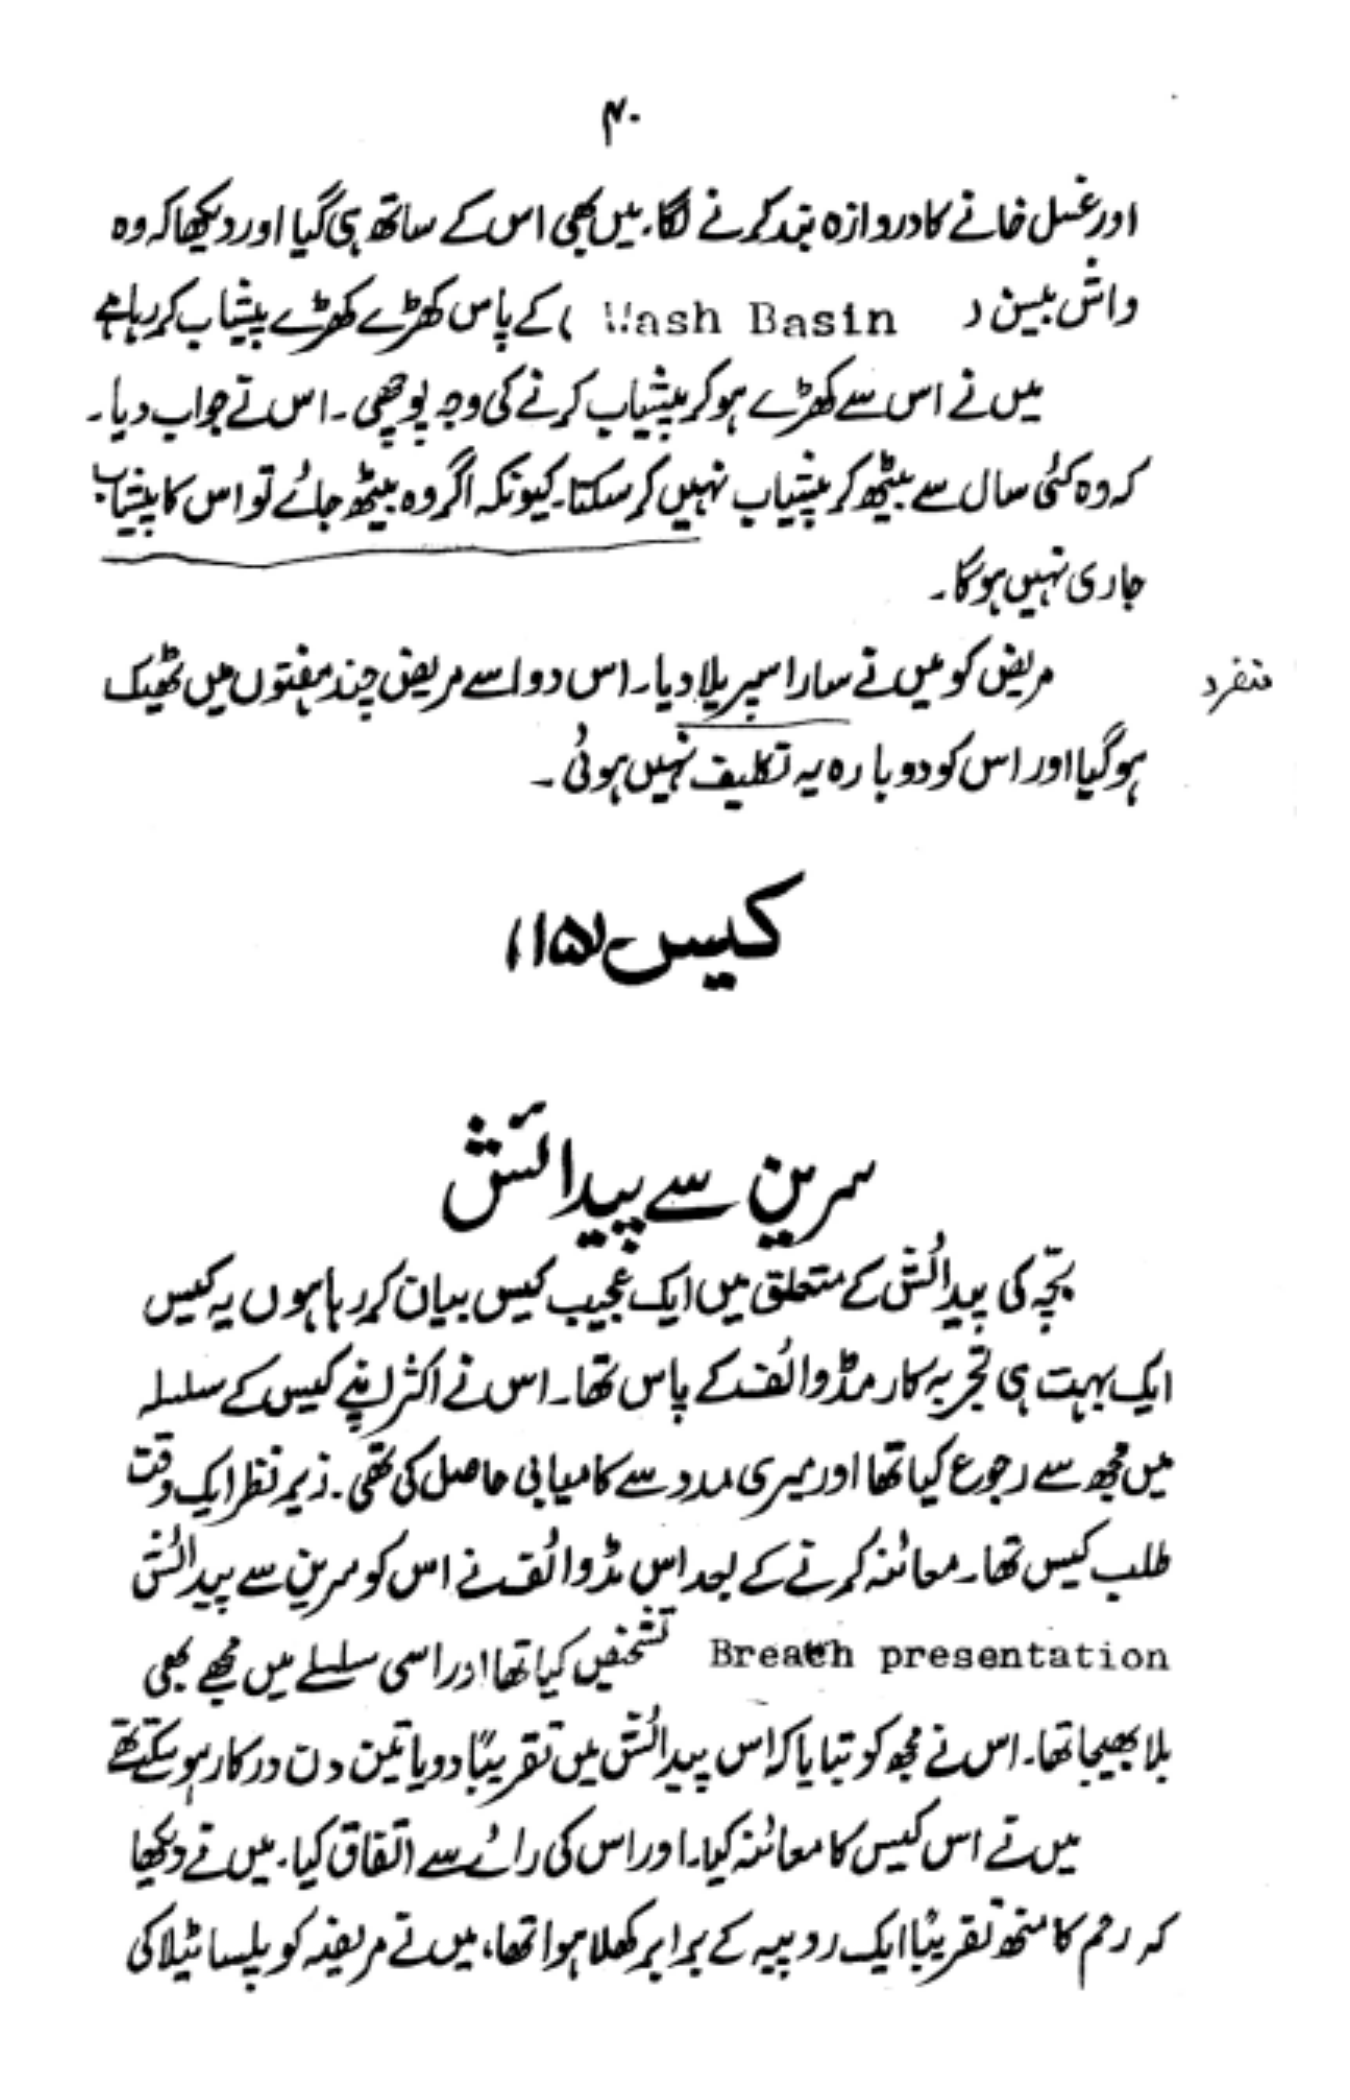 ۴۰
اور غسل خانے کا دروازہ بند کرنے لگا۔ میں بھی اس کے ساتھ ہی گیا اور دیکھا کہ وہ
واش بیسن ( Wash Basin ) کے پاس کھڑے کھڑے پیشاب کر رہا ہے
میں نے اس سے کھڑے ہو کر پیشاب کرنے کی وجہ پوچھی۔ اس نے جواب دیا۔
کہ وہ کئی سال سے بیٹھ کر پیشاب نہیں کر سکتا۔ کیونکہ اگر وہ بیٹھ جائے تو اس کا پیشاب
جاری نہیں ہوگا۔
مریض کو میں نے سارا سپریلا دیا۔ اس دوا سے مریض چند ہفتوں میں ٹھیک
منفرد
ہو گیا اور اس کو دوبارہ یہ تکلیف نہیں ہوئی۔
کیس (۱۵)
سرین سے پیدائش
بچّہ کی پیدائش کے متعلق میں ایک عجیب کیس بیان کر رہا ہوں یہ کیس
ایک بہت ہی تجربہ کار مڈوائف کے پاس تھا۔ اس نے اکثر اپنے کیس کے سلسلہ
میں مجھ سے رجوع کیا تھا اور میری مدد سے کامیابی حاصل کی تھی۔ زیر نظر ایک وقت
طلب کیس تھا۔ معائنہ کرنے کے بعد اس مڈوائف نے اس کو سرین سے پیدائش
Breach presentation تشخیص کیا تھا اور اسی سلسلے میں مجھے بھی
بلا بھیجا تھا۔ اس نے مجھ کو بتایا کہ اس پیدائش میں تقریباً دو یا تین دن درکار ہو سکتے تھے
میں نے اس کیس کا معائنہ کیا۔ اور اس کی رائے سے اتفاق کیا۔ میں نے دیکھا
کہ رحم کا منھ تقریباً ایک روپیہ کے برابر کھلا ہوا تھا، میں نے مریضہ کو پلساٹیلا کی